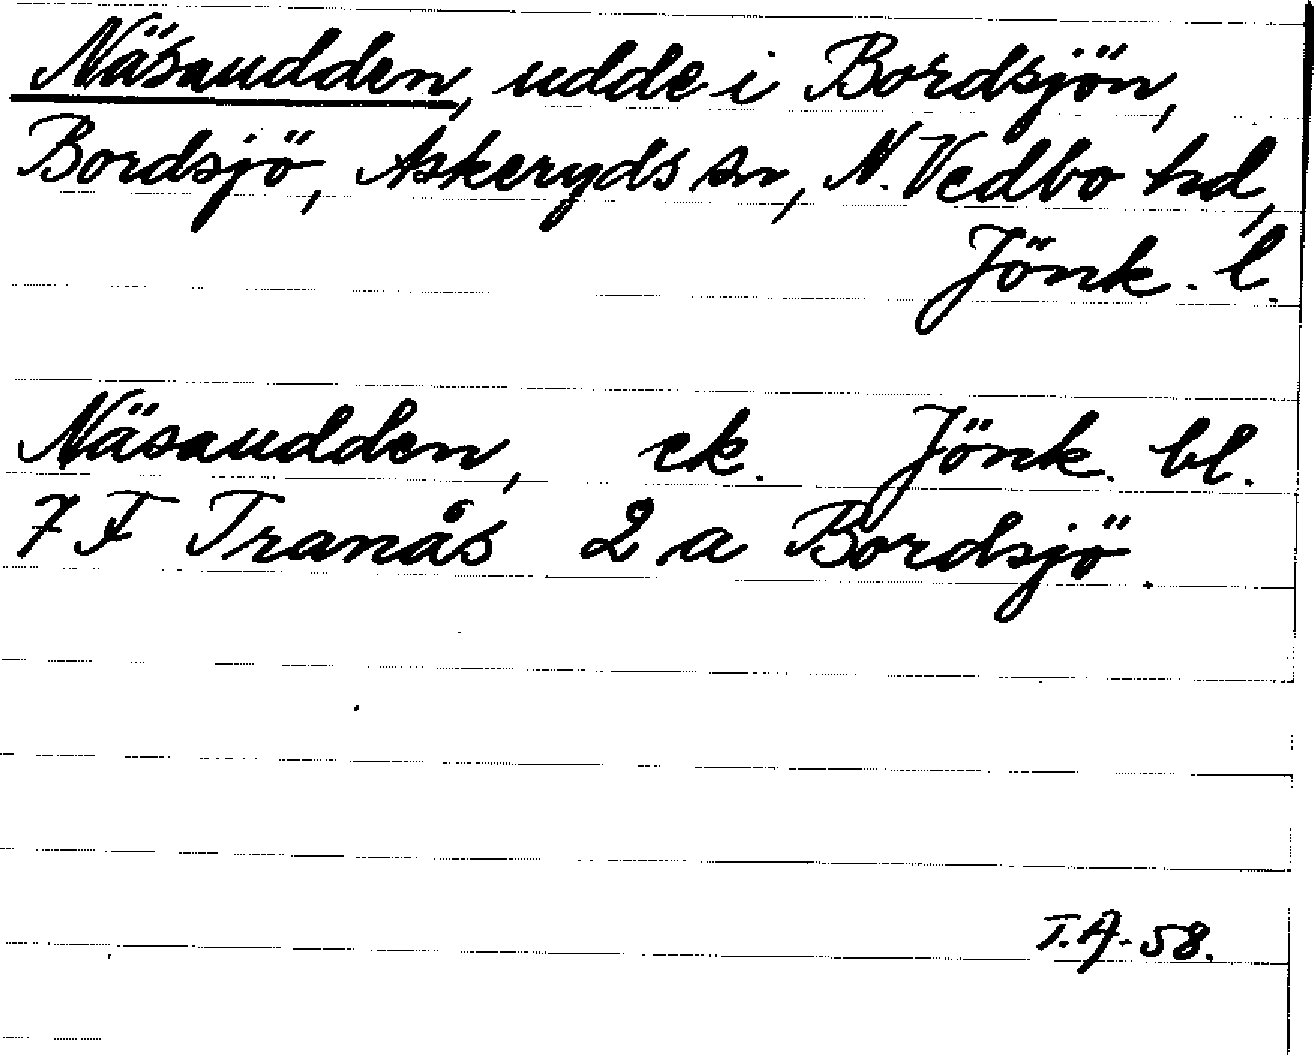 Näsaudden, udde i Bordsjön,
Bordsjö, Askeryds sn, N. Vedbo hd,
Jönk. l.
Näsaudden, ek. Jönk. bl.
7 F Tranås 2 a Bordsjö.
T.A-58.